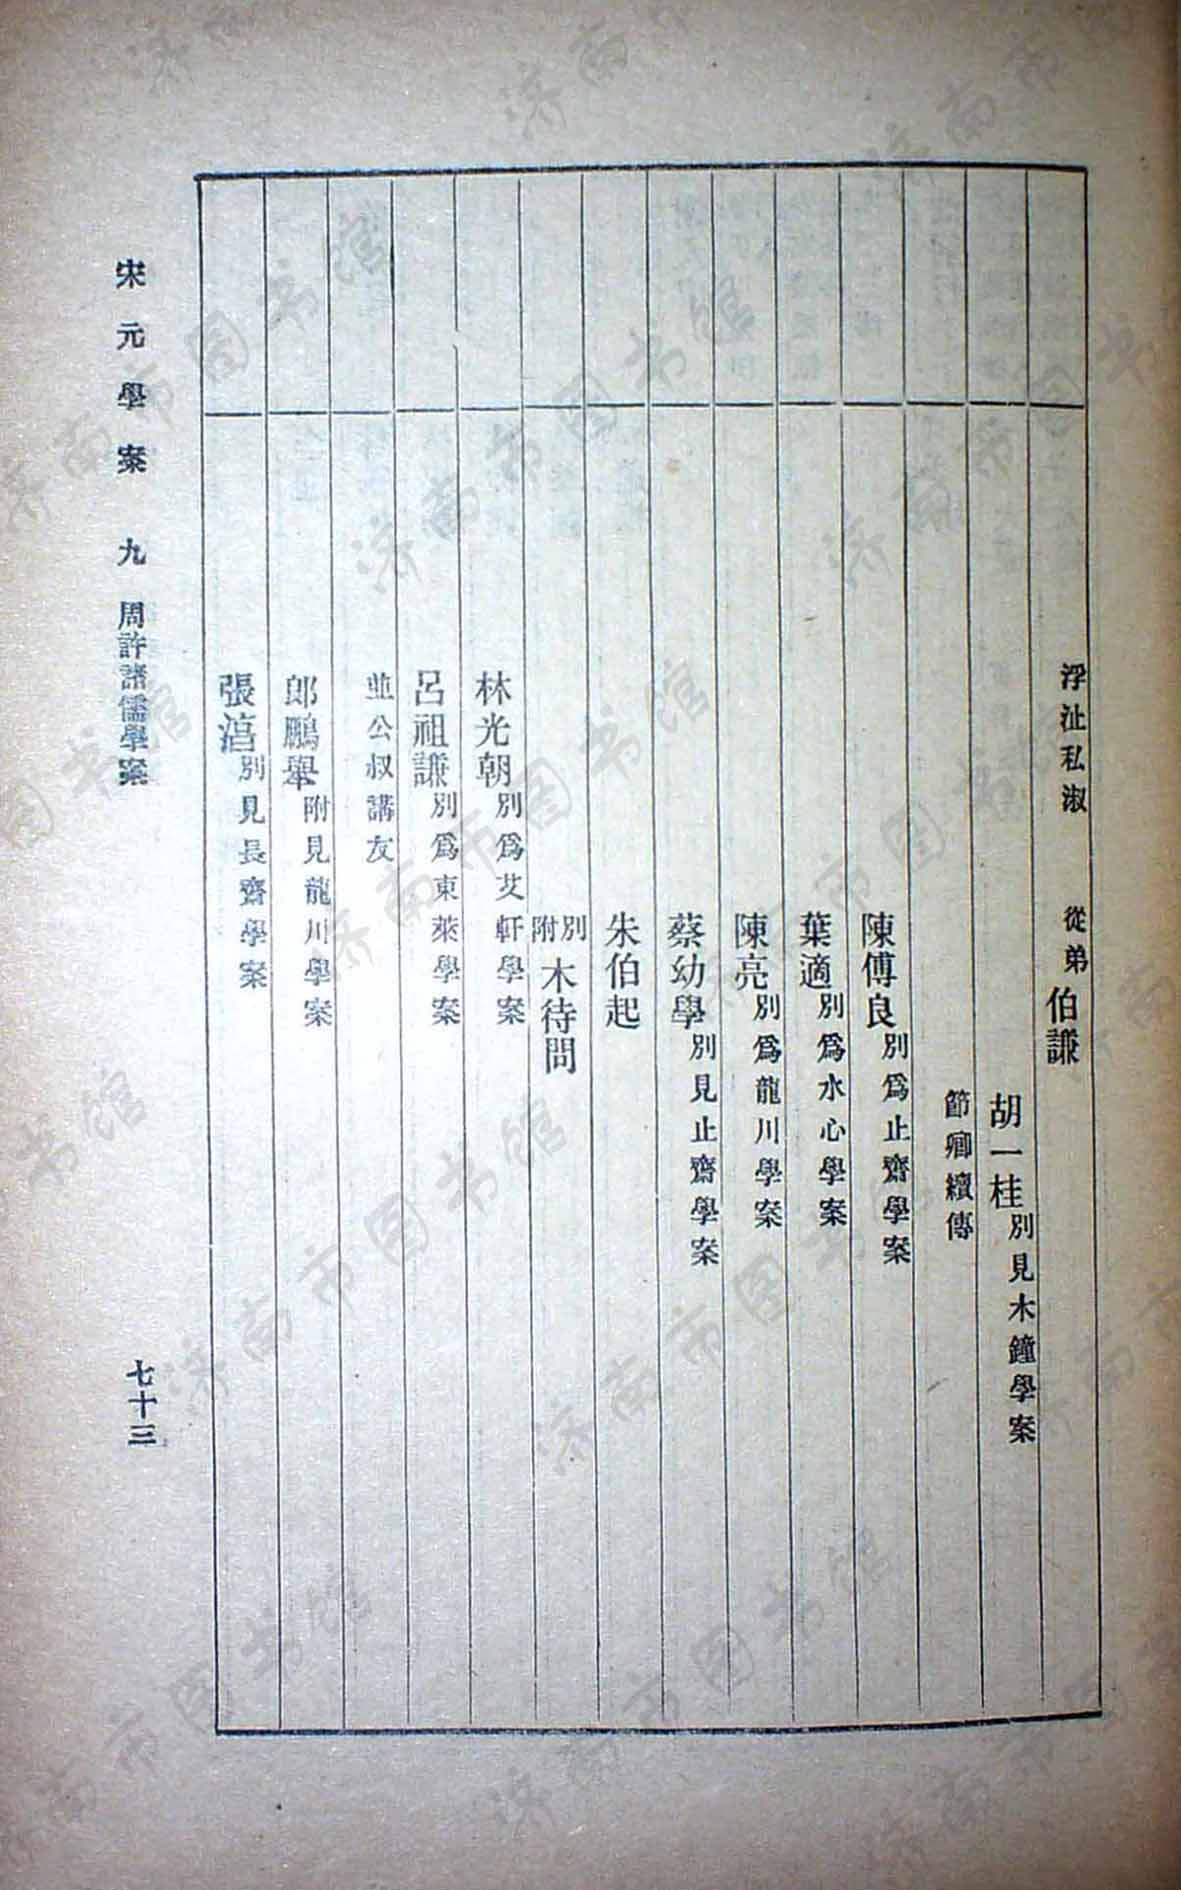 浮沚私淑 從弟伯謙
胡一桂別見木鐘學案
節卿續傳
陳傅良別爲止齋學案
葉適別爲水心學案
陳亮別爲龍川學案
蔡幼學別見止齋學案
朱伯起
別附木待問
林光朝別爲艾軒學案
呂祖謙別爲東萊學案
並公叔講友
郎鵬舉附見龍川學案
張淳別見長齋學案
宋元學案 九 周許諸儒學案 七十三
济南市图书馆